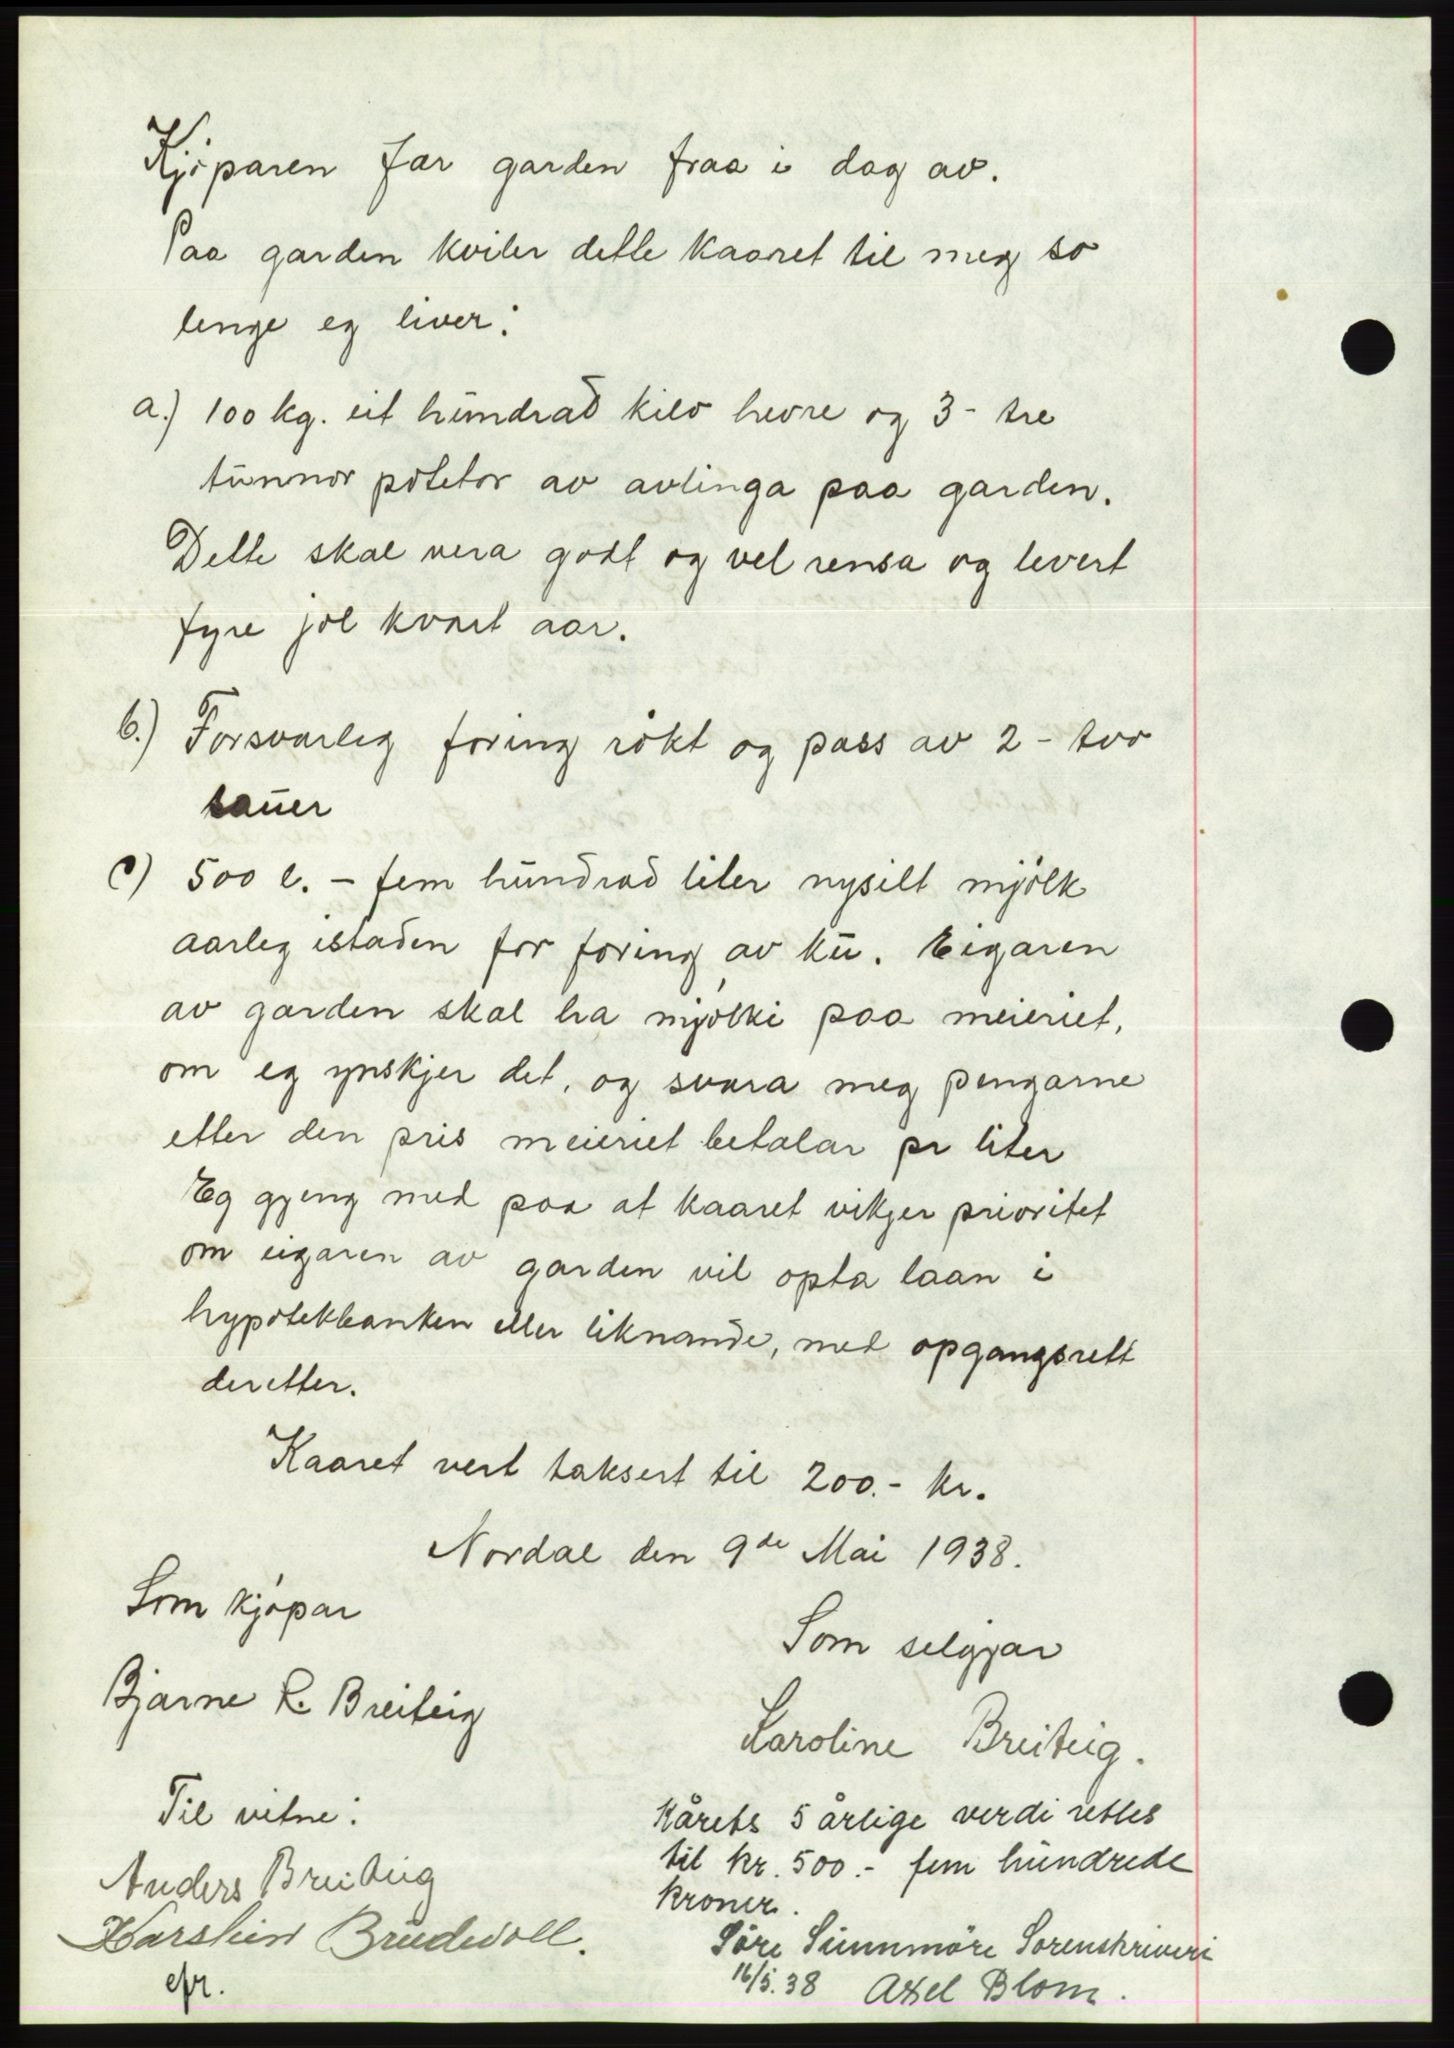 Kjöparen fær garden fraa i dag av.
Paa garden kviler dette kaaret til meg so
lenge eg liver:
a.) 100 kg. eit hundrad kilo havre og 3 - tre
tunnor potetor av avlinga paa garden.
Dette skal vera godt og vel rensa og levert
fyre jol kvart aar.
b.) Forsvarleg foring rökt og pass av 2 - tvo
sauer
c) 500 l. - fem hundrad liter nysilt mjölk
aarleg istaden for foring av ku. Eigaren
av garden skal ha mjölki paa meieriet,
om eg ynskjer det, og svara meg pengarne
etter den pris meieriet betalar pr liter
Eg gjeng med paa at kaaret vikjer prioritet
om eigaren av garden vil opta laan i
hypotekbanken eller liknande, med opgangsrett
deretter.
Kaaret vert taksert til 200.- kr.
Nordal den 9de Mai 1938.
Som kjöpar
Som selgjar
Bjarne R. Breiteig
Karoline Breiteig.
Til vitne:
Anders Breiteig
Karstein Brudevoll.
efr.
Kårets 5 årlige verdi settes
til kr. 500.- fem hundrede
kroner.
Söre Sunnmöre Sorenskriveri
16/5.38 Axel Blom.